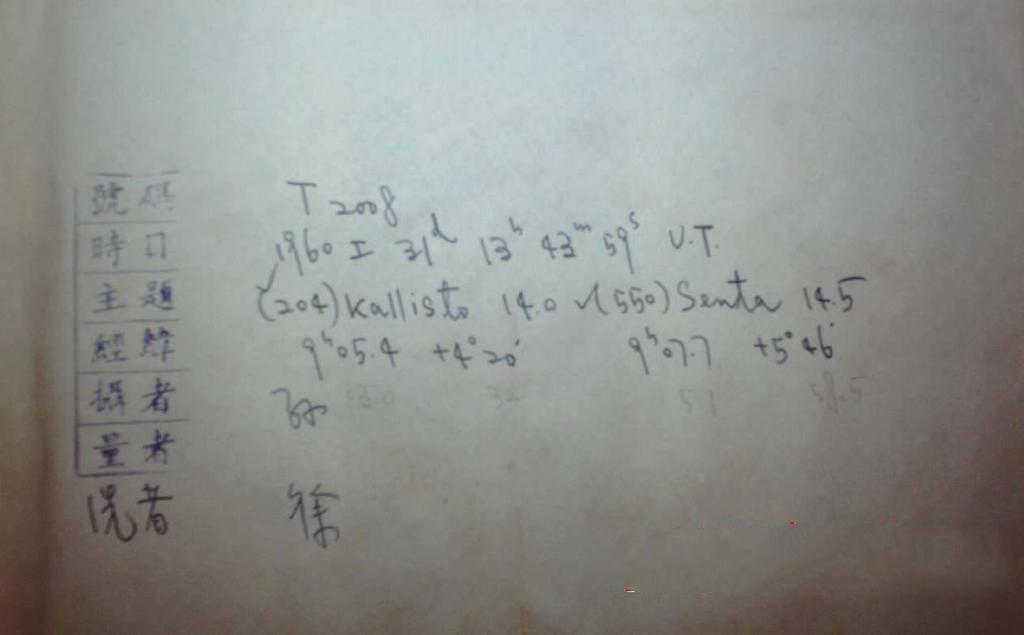 號碼 T 2008
時日 1960 I 31d 13h 43m 59s U.T.
主題 (204) Kallisto 14.0 √(550) Senta 14.5
經緯 9h05.4 +4°20' 9h07.7 +5°46'
攝者 孙 03.0 32 5.1 58.5
量者
洗者 徐